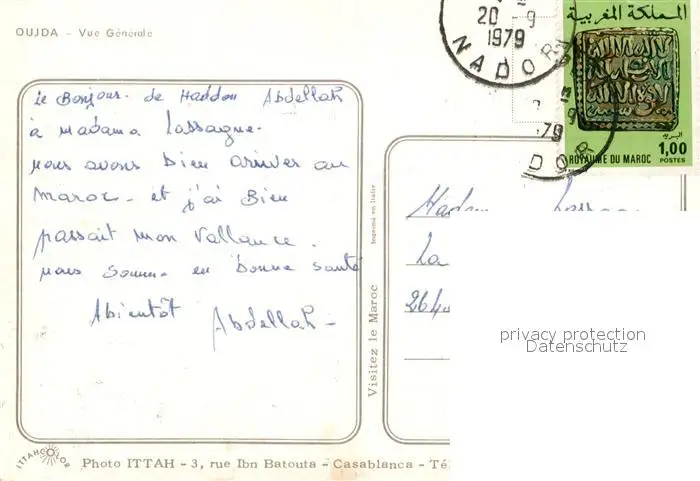 OUJDA - Vue Générale
20 - 9
1979
NADOR
المملكة المغربية
1,00
البريد
ROYAUME DU MAROC POSTES
79
DOR
le Bonjour. de Haddou Abdellah
à Madama Lassagne.
nous avons bien arriver au
maroc - et j'ai Bien
passait mon Vallance.
nous Somme en bonne santé
Abientôt Abdellah -
Visitez le Maroc
Imprimé en Italie
Madam Lassag
La
264
privacy protection
Datenschutz
ITTAHCOLOR
Photo ITTAH - 3, rue Ibn Batouta - Casablanca - Té